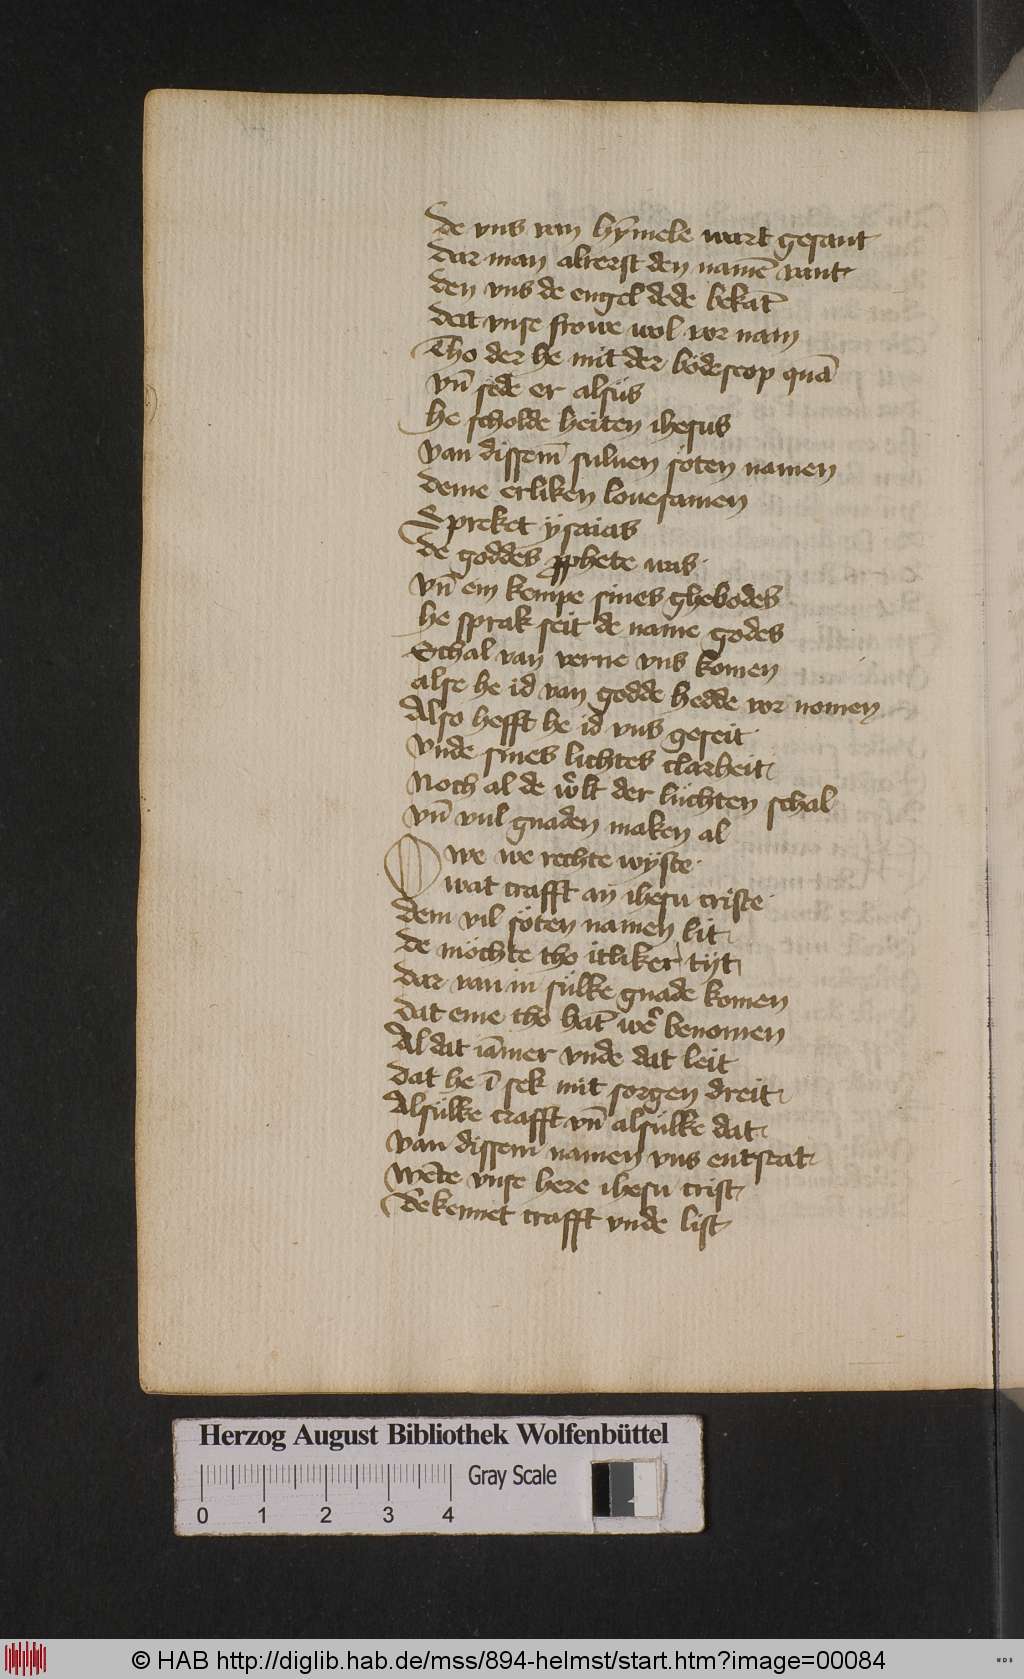 de vns van hȳmele wart gesant
dar man alrerst den namē vant
den vns de engel dede bekāt
dat vnse frowe wol vor nam
Tho der he mit der bodescop quā
vn̄ sede er alsüs
he scholde heiten ihesus
van dissem̄ suluen soten namen
deme erliken louesamen
Spreket ÿsaias
de goddes ꝓphete was
vn̄ em kempe sines ghebodes
he sprak seit de name godes
Schal van verne vns komen
alse he id van godde hedde vor nomen
Also hefft he id vns geseit
vnde sines lichtes clarheit
Noch al de w̉lt der lüchten schal
vn̄ vul gnaden maken al
O we we rechte wÿste
wat crafft an ihesu criste
dem vil söten namen lit
de möchte tho itliker tÿt
dar van in sülke gnade komen
dat eme tho hāt wer̉ benomen
Al dat iāmer vnde dat leit
dat he ī sek mit sorgen dreit
Alsülke crafft vn̄ alsülke dat
van dissem namen vns entstat
wēte vnse here ihesu crist
Bekennet crafft vnde list
Herzog August Bibliothek Wolfenbüttel
Gray Scale
0 1 2 3 4
© HAB http://diglib.hab.de/mss/894-helmst/start.htm?image=00084